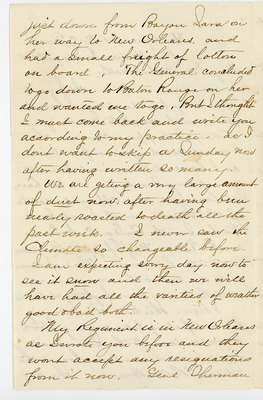 just down from Bayou Sara on
her way to New Orleans. and
had a small freight of Cotton
on board. The General concluded
to go down to Baton Rouge on her
and wanted me to go, But I thought
I must come back and write you
according to my practice as I
dont want to skip a Sunday now
after having written so many.
We are geting a very large amount
of dust now. after having been
nearly roasted to death all the
past week. I never saw the
Climate so changeable before
I am expecting every day now to
see it snow and then we will
have had all the varities of weather
good & bad both.
My Regiment is in New Orleans
as I wrote you before and they
wont accept any resignations
from it now. Genl Sherman